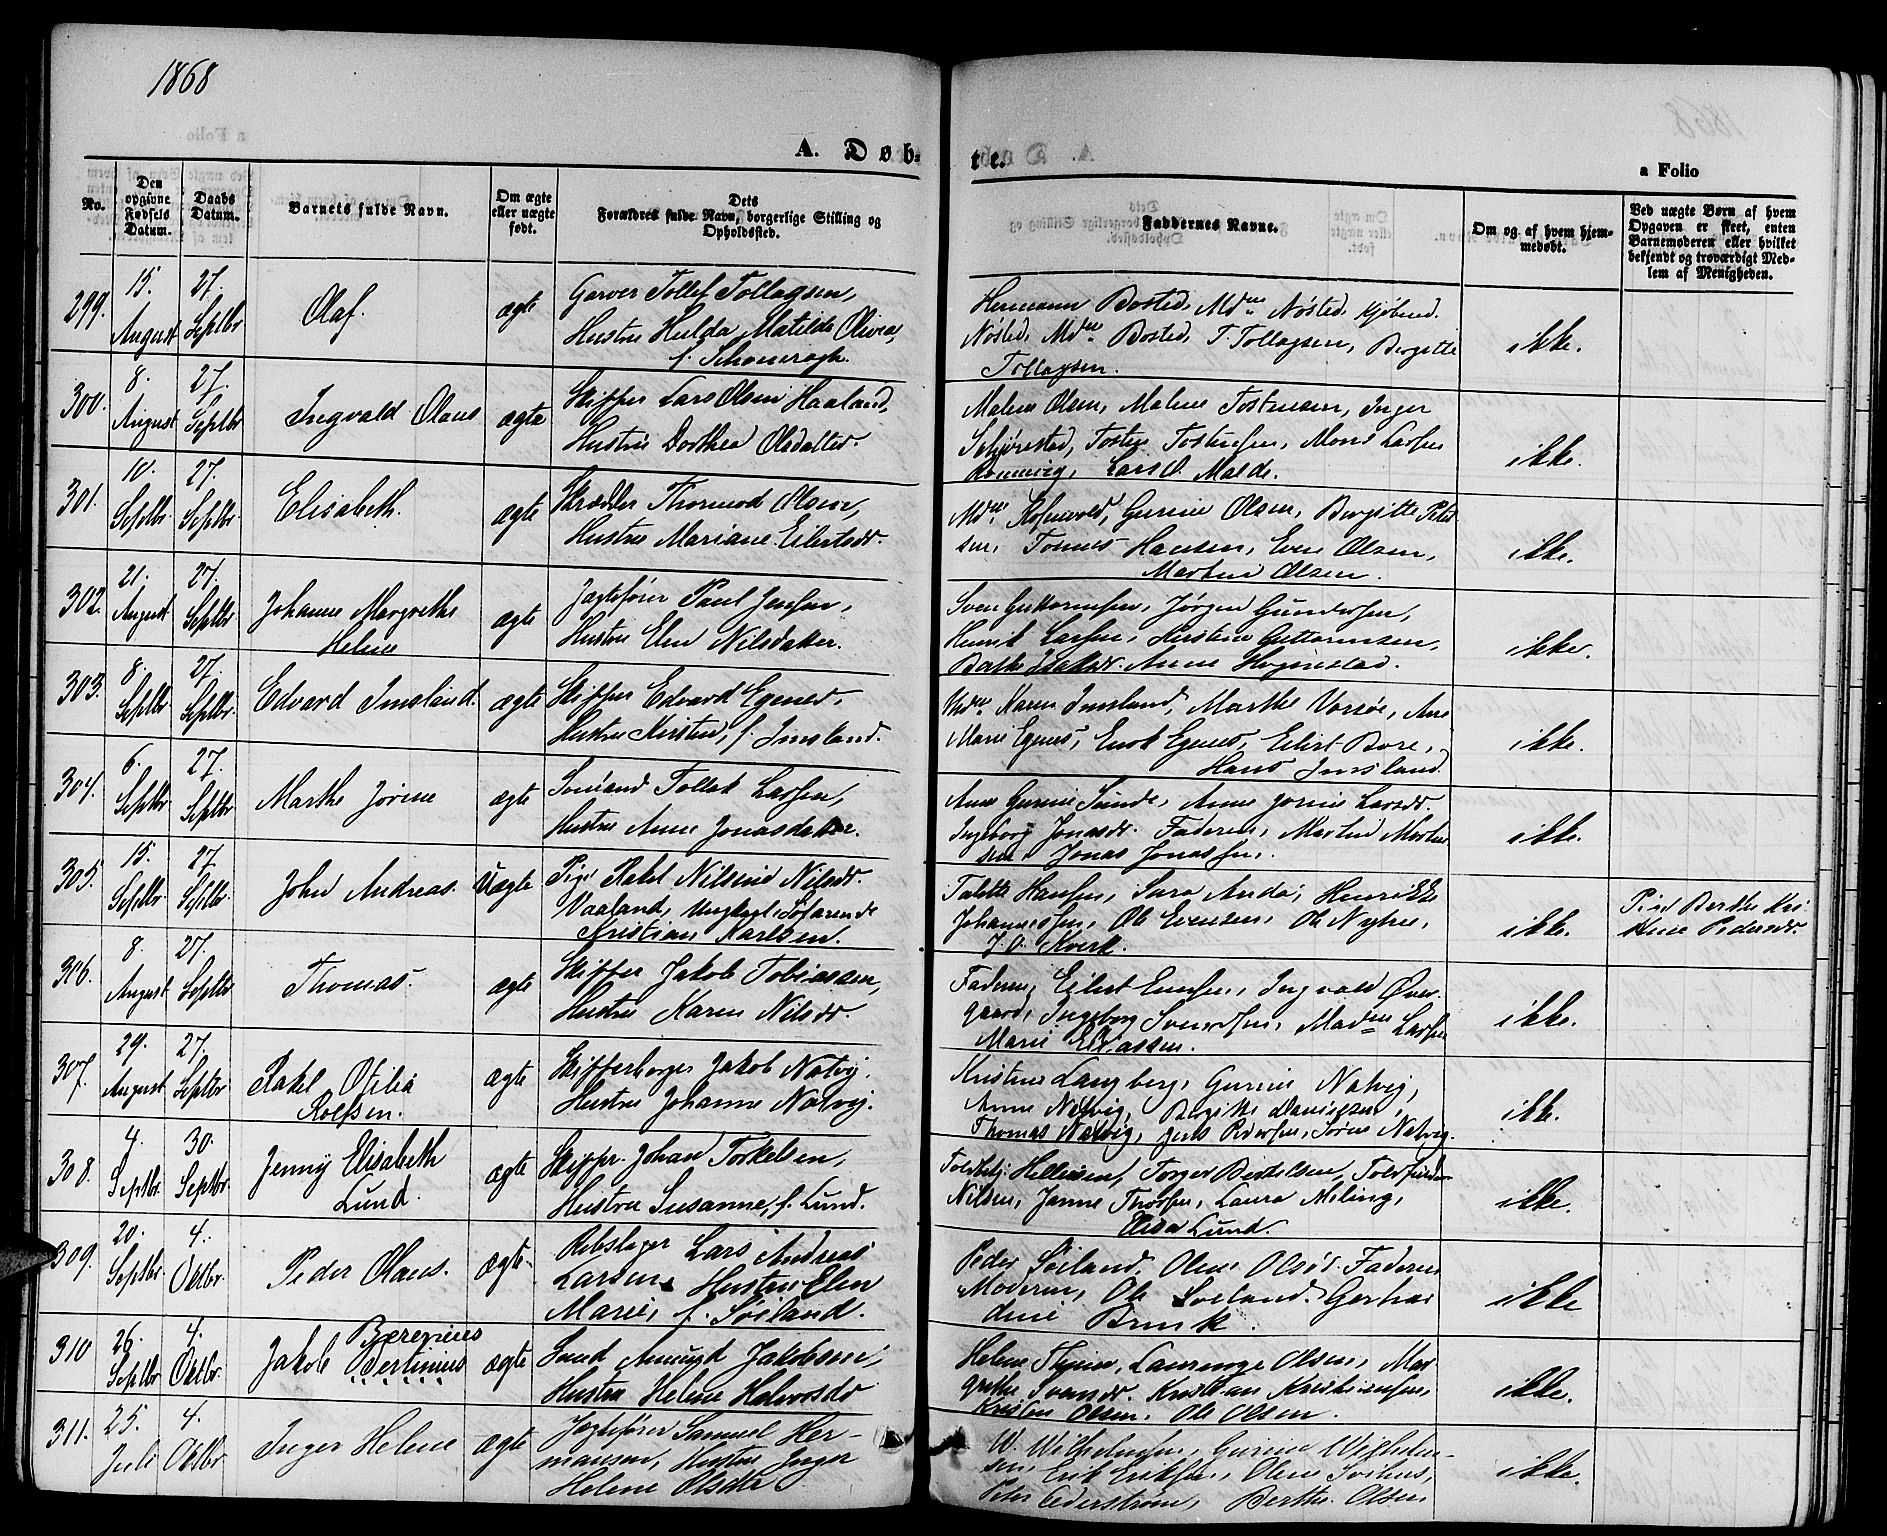 1868
A. Døb-
te.
a Folio
No.
Den opgivne Fødsels Datum.
Daabs Datum.
Barnets fulde Navn.
Om ægte eller uægte født.
Dets Forældres fulde Navn, borgerlige Stilling og Opholdssted.
Faddernes Navne.
Om og af hvem hjemmedøbt.
Ved uægte Børn af hvem Opgaven er skeet, enten Barnemoderen eller hvilket bekjendt og troværdigt Medlem af Menigheden.
299. 15. August 27. Septbr Olaf. ægte
Garver Tollef Tollagsen,
Hustru Hulda Matilde Olivia,
Hermann Bosted, Md. Nøsted,
Nøsted, Md. Bosted, T. Tollagsen, Birgitte
Tollagsen.
ikke.
300. 8. August 27. Septbr Ingvald Olaus ægte
Skipper Lars Olsen Haaland,
Hustru Dorthea Olsdatter.
Malene Olsen, Malene Tostensen, Inger
Tosten Tostensen, Mons Larsen
Lars O. Malde.
ikke.
301. 10. Septbr. 27. Septbr. Elisabeth. ægte
Skrædder Thormod Olsen,
Hustru Mariane Eilertsdr.
Md. Gurine Olsen, Birgitte Peter
sen, Tønnes Hansen, Even Olsen,
Martin Olsen.
ikke.
302. 21. August 27. Septbr Johanne Margrethe
Helene
ægte
Jægtefører Paul Jensen,
Hustru Elen Nilsdatter.
Sven Guttormsen, Jørgen Gundersen,
Henrik Larsen, Kirstine Guttormsen,
Anne Hognestad.
ikke.
303. 8. Septbr 27. Septbr. Edvard Imsland. ægte
Skipper Edvard Egenes,
Hustru Kirsten, f. Imsland.
Karen Imsland, Marthe Vorsøe, Ane
Marie Egenes, Enok Egenes, Eilert Bore,
Hans Imsland.
ikke.
304. 6. Septbr 27. Septbr. Marthe Jørine ægte
Sømand Tollak Larsen,
Hustru Anne Jonasdatter.
Ane Gurine Sunde, Anne Jørine Larsdr.
Ingeborg Jonasdr. Faderen, Martin Morten
sen, Jonas Jonassen.
ikke.
305. 15. Septbr. 27 Septbr. John Andreas. Uægte
Pige Rakel Nilsine Nilsdr.
Vaaland, Ungkarl Søfarende
Kristian Karlsen.
Talette Hansen, Sara Anda, Henrikke
Johannessen, Ole Evensen, Ole Nytun,
J. O. Kverk.
ikke.
Pige Berthe Kri
stine Pedersdr.
306. 8. August 27. Septbr Thomas. ægte
Skipper Jakob Tobiassen,
Hustru Karen Nilsdr.
Faderen, Eilert Ingvald Øver-
gaard, Ingeborg Svendsen, Madm Larsen
Marie Eliassen.
ikke.
307. 29. August 27. Septbr Rakel Otilia
Roelfsen.
ægte
Skipperborger Jakob Natvig,
Hustru Johanne Natvig.
Kristine Langberg, Gurine Natvig,
Anne Natvig, Birgitte Danielsen,
Thomas Natvig, Jens Pedersen, Søren Natvig.
ikke.
308. 4. Septbr. 30. Septbr. Jenny Elisabeth
Lund.
ægte
Skipper Johan Torkelsen,
Hustru Susanne, f. Lund.
Toldbetj. Hellesen, Torger Bertelsen,
Nilsen, Janne Thorsen, Laura Meling,
Elisa Lund.
ikke.
309. 20. Septbr. 4. Oktbr. Peder Olaus. ægte.
Rebslager Lars Andreas
Larsen, Hustru Elen
Marie, f. Soiland.
Peder Soiland, Olene Faderen
Moderen, Ole Soeland. Gerhar
dine Brink.
ikke
310 26. Septbr 4. Oktbr. Jakob Bertinius
Berenius
ægte
Smed Amund Jakobsen,
Hustru Helene Halvorsdr
Helene Laurenze Olsen, Mar
grethe Svendsdr. Kristian Kristiansen,
Kristen Olsen. Ole Olsen.
ikke.
311. 25. Juli 4. Oktbr. Inger Helene ægte
Jægtefører Samuel Her-
mansen, Hustru Inger
Helene Olsdtr
W. Wilhelmsen, Gurine Wilhelm-
sen, Erik Eriksen, Olene Svihus,
Peter Cederstrøm, Berthe Olsen,
ikke.